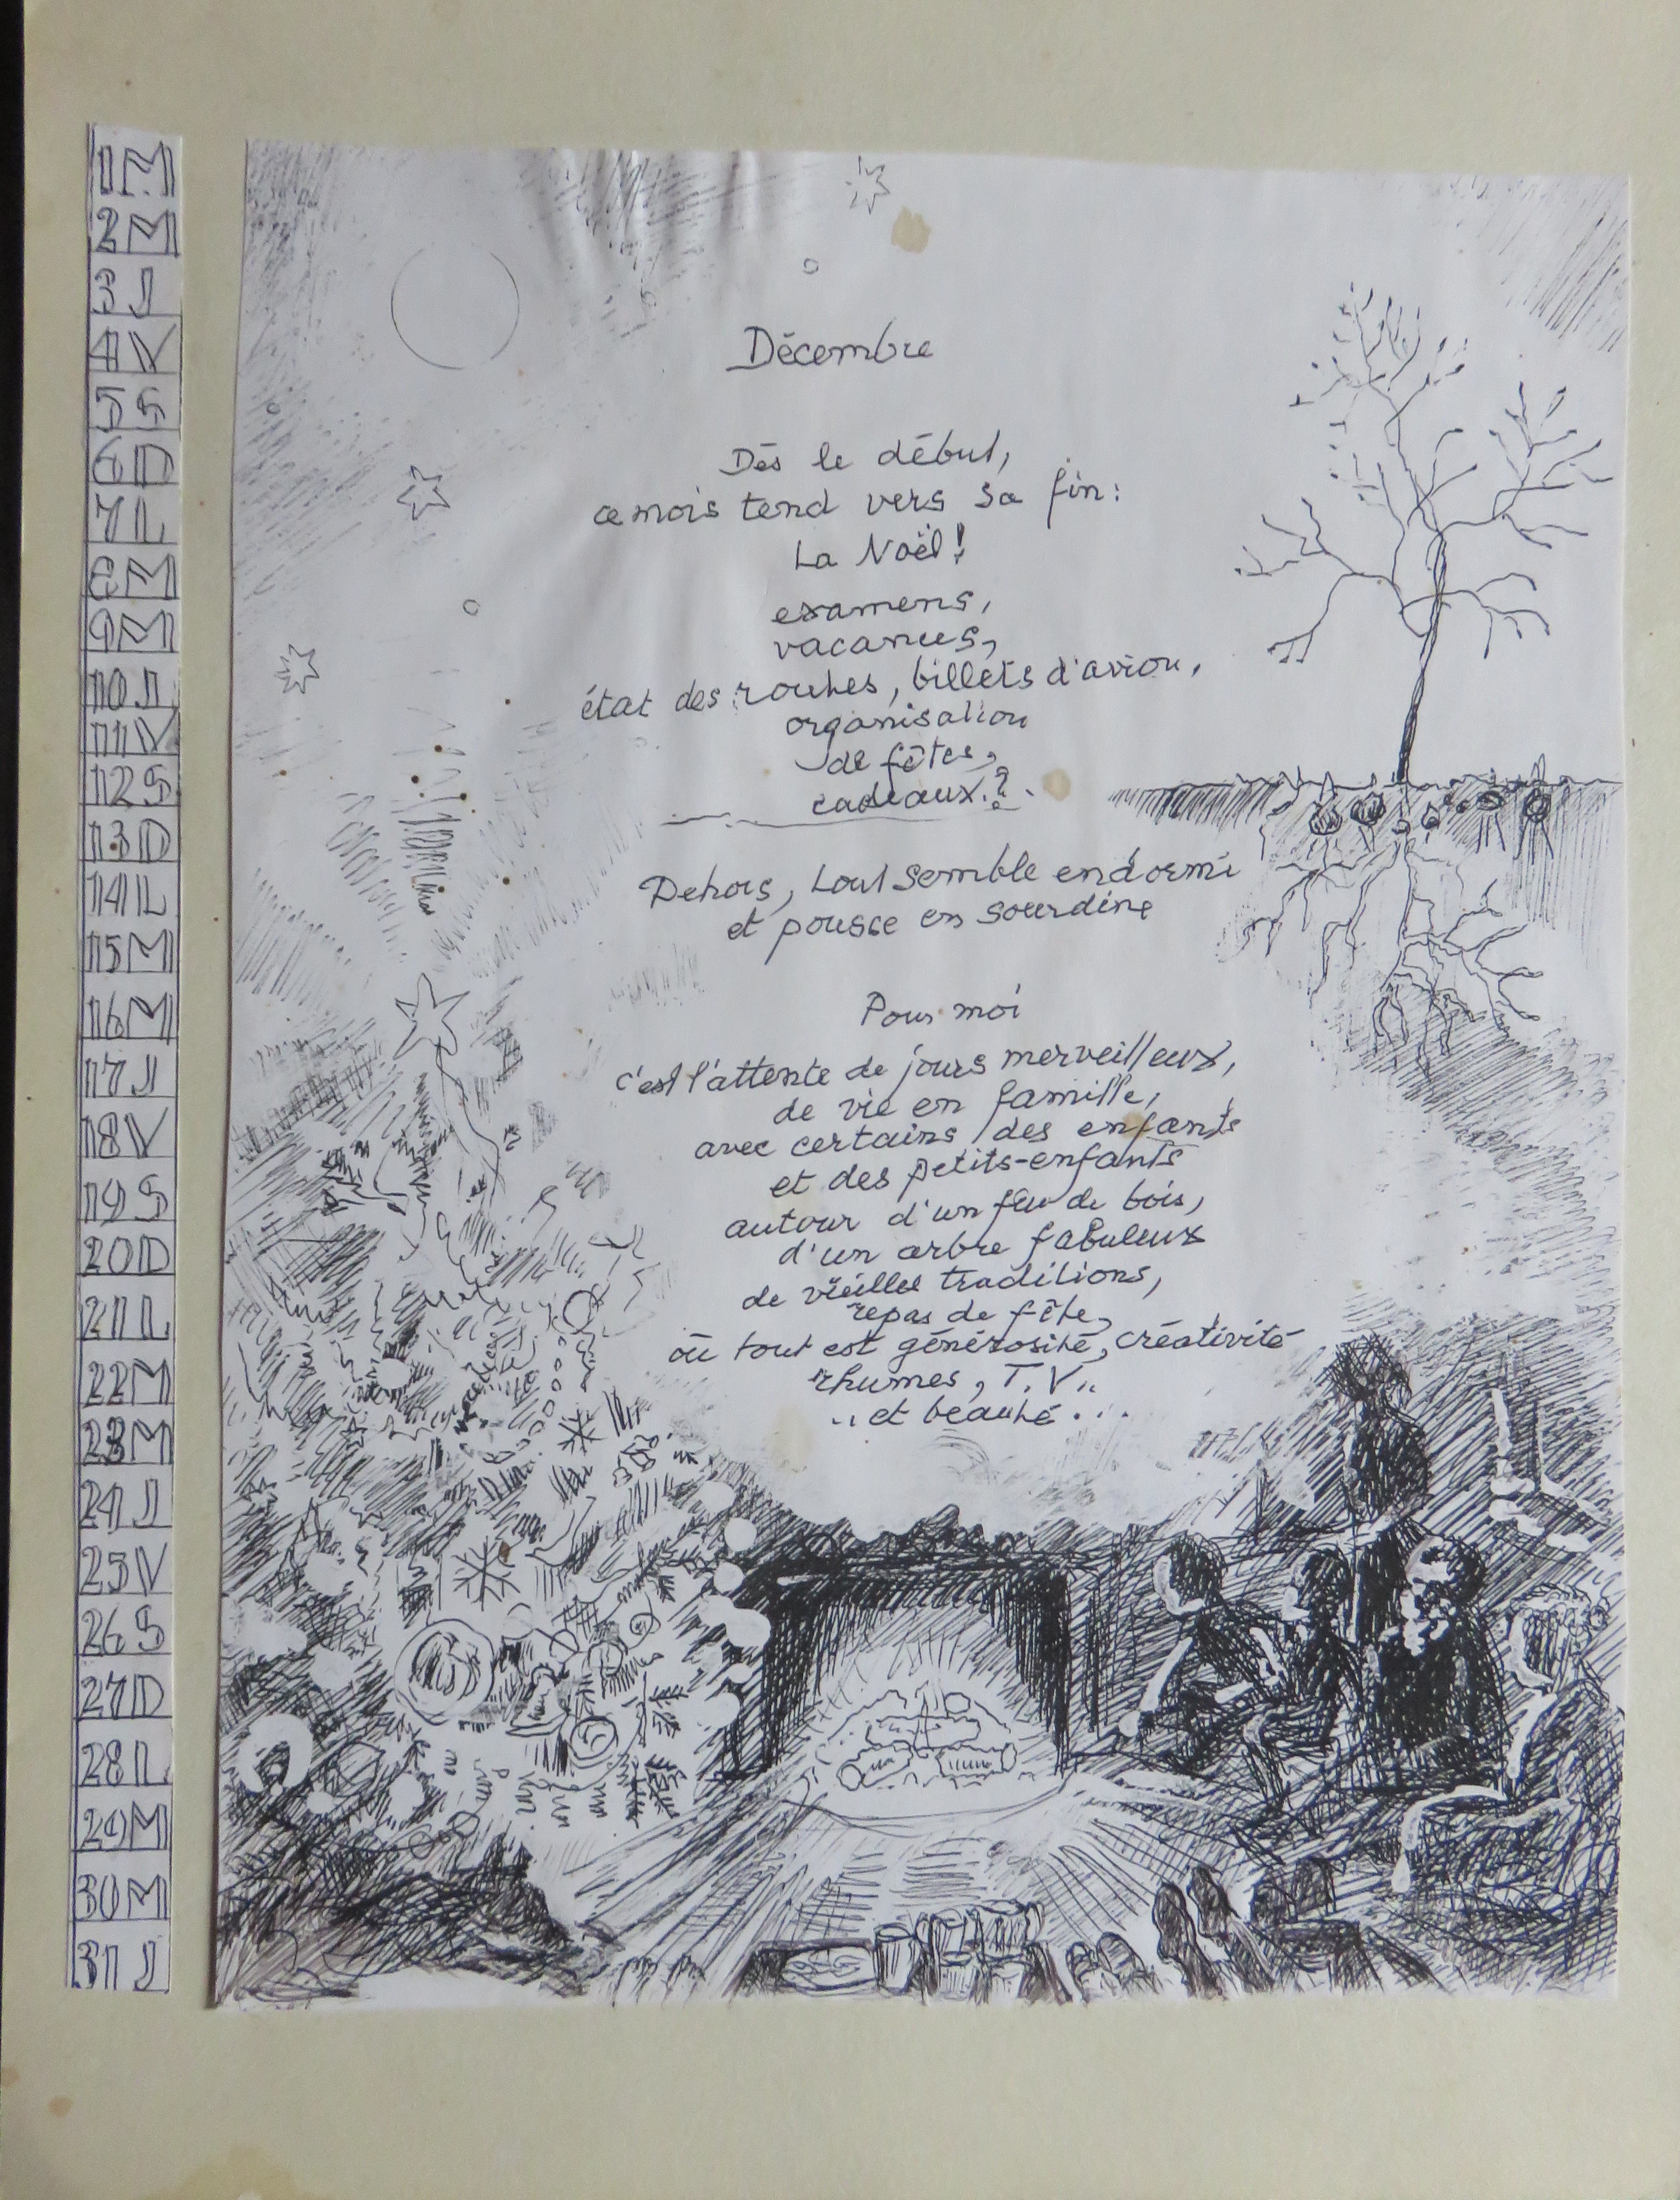 1M
2M
3J
4V
5S
6D
7L
8M
9M
10J
11V
12S
13D
14L
15M
16M
17J
18V
19S
20D
21L
22M
23M
24J
25V
26S
27D
28L
29M
30M
31J
Décembre
Dès le début,
ce mois tend vers sa fin:
La Noël!
examens,
vacances,
état des routes, billets d'avion,
organisation
de fêtes,
cadeaux.?.
Dehors, tout semble endormi
et pousse en sourdine
Pour moi
c'est l'attente de jours merveilleux,
de vie en famille,
avec certains des enfants
et des petits-enfants
autour d'un feu de bois,
d'un arbre fabuleux
de vieilles traditions,
repas de fête,
où tout est générosité, créativité
rhumes, T.V..
..et beauté...